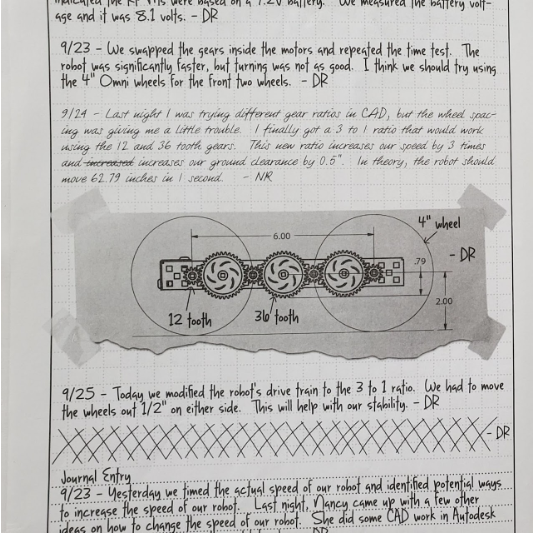 were based on a 7.2v battery. We measured the battery volt-
age and it was 8.1 volts. - DR
9/23 - We swapped the gears inside the motors and repeated the time test. The
robot was significantly faster, but turning was not as good. I think we should try using
the 4" Omni wheels for the front two wheels. - DR
9/24 - Last night I was trying different gear ratios in CAD, but the wheel spac-
ing was giving me a little trouble. I finally got a 3 to 1 ratio that would work
using the 12 and 36 tooth gears. This new ratio increases our speed by 3 times
and increased increases our ground clearance by 0.5". In theory, the robot should
move 62.79 inches in 1 second. - NR
4" wheel
6.00
.79
- DR
2.00
12 tooth
36 tooth
9/25 - Today we modified the robot's drive train to the 3 to 1 ratio. We had to move
the wheels out 1/2" on either side. This will help with our stability. - DR
- DR
Journal Entry
9/23 - Yesterday we timed the actual speed of our robot and identified potential ways
to increase the speed of our robot. Last night, Nancy came up with a few other
ideas on how to change the speed of our robot. She did some CAD work in Autodesk